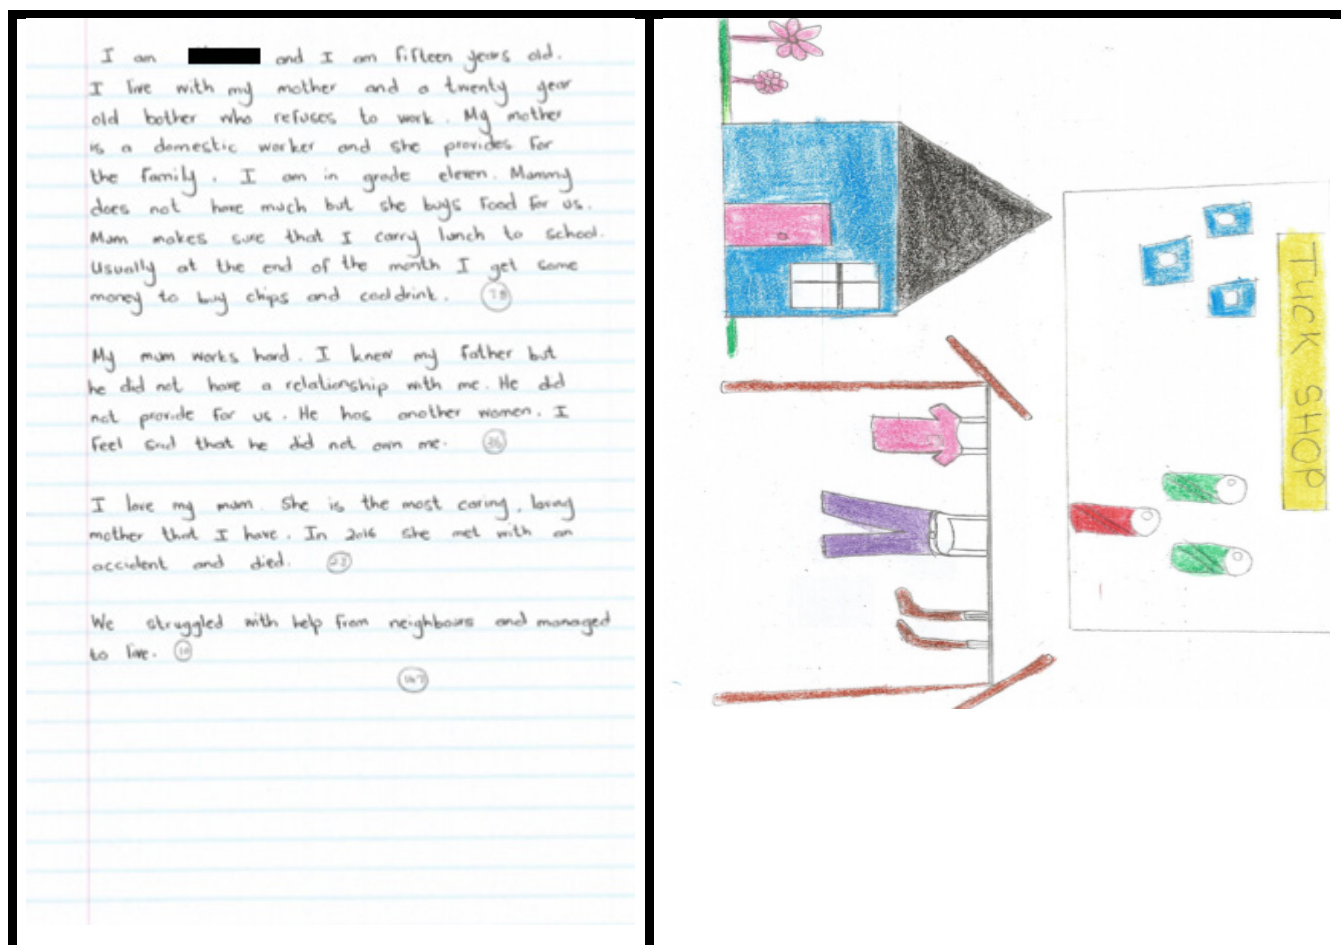 I am and I am fifteen years old.
I live with my mother and a twenty year
old bother who refuses to work. My mother
is a domestic worker and she provides for
the family. I am in grade eleven. Mammy
does not have much but she buys food for us.
Mum makes sure that I carry lunch to school.
Usually at the end of the month I get some
money to buy chips and cooldrink. 78
My mum works hard. I knew my father but
he did not have a relationship with me. He did
not provide for us. He has another women. I
feel sad that he did not own me. 36
I love my mum. She is the most caring, loving
mother that I have. In 2016 she met with an
accident and died. 23
We struggled with help from neighbours and managed
to live. 10
147
TUCK SHOP